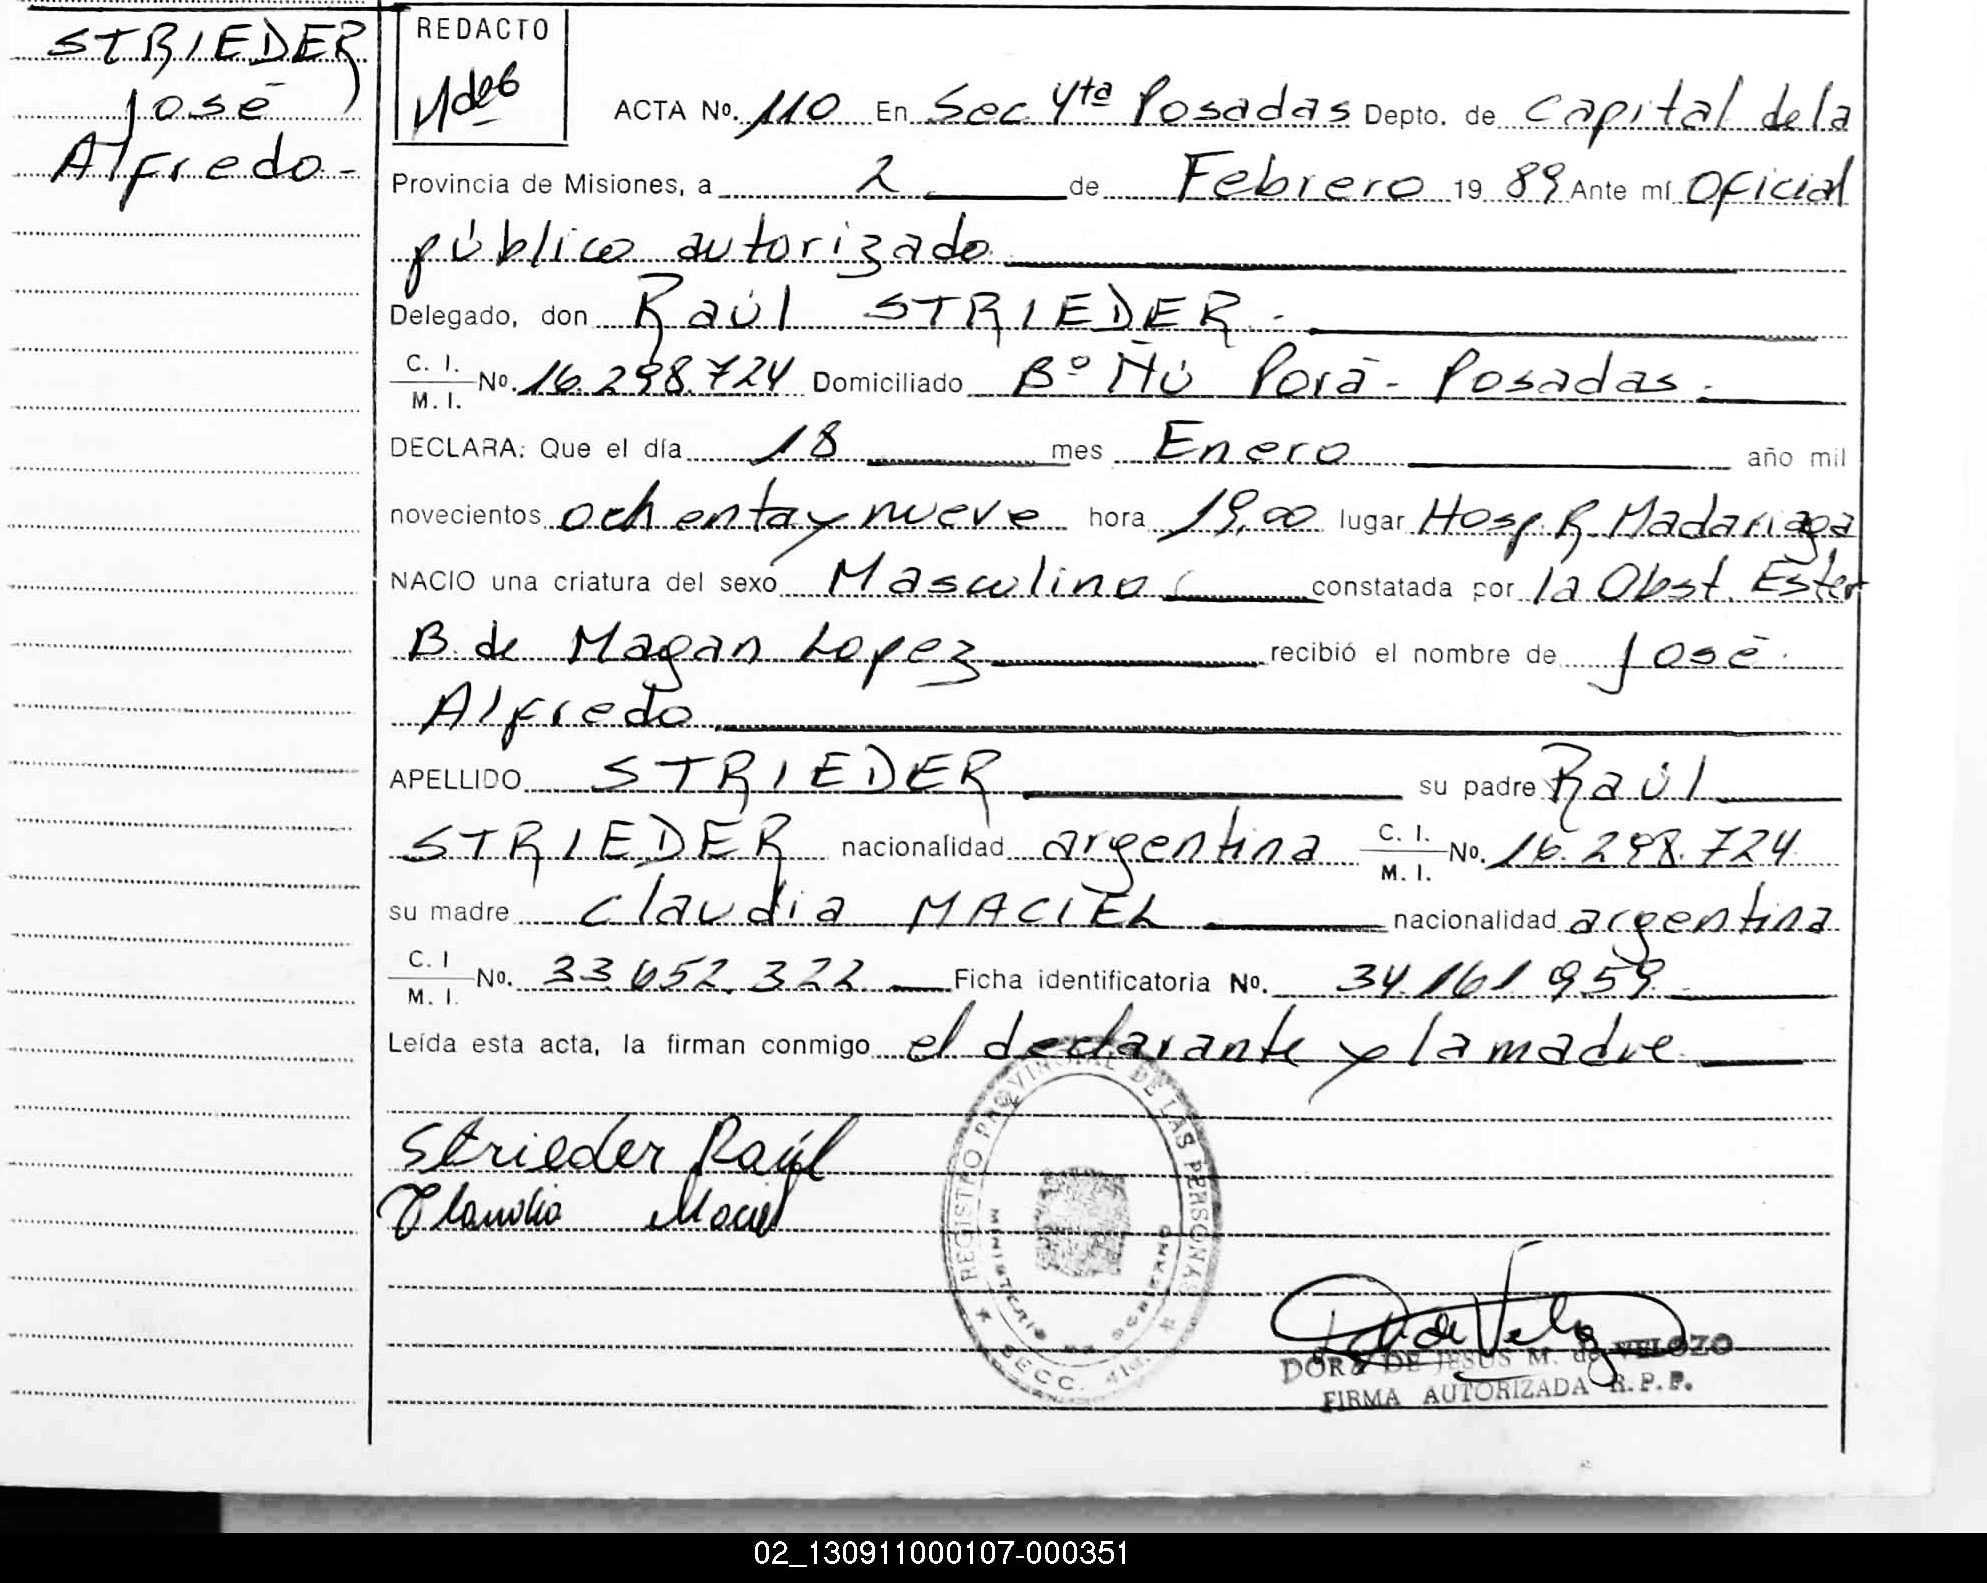 STRIEDER
José
Alfredo-
REDACTO
ACTA No. 110 En Sec 4ta Posadas Depto. de Capital de la
Provincia de Misiones, a 2 de Febrero 19 89 Ante mí Oficial
público autorizado
Delegado, don Raúl STRIEDER.-
C. I.
M. I. No. 16.298.724 Domiciliado Bº Ñú Porá - Posadas.
DECLARA: Que el día 18 mes Enero año mil
novecientos ochenta y nueve hora 19,00 lugar Hosp. R. Madariaga
NACIO una criatura del sexo Masculino constatada por la Obst. Ester
B. de Magan Lopez recibió el nombre de José
Alfredo
APELLIDO STRIEDER su padre Raúl
STRIEDER nacionalidad argentina C. I. M. I. No. 16.298.724
su madre Claudia MACIEL nacionalidad argentina
C. I M. I. No. 33.652.322 Ficha identificatoria No. 34.161.959
Leída esta acta, la firman conmigo el declarante y la madre
Strieder Raúl
Claudia Maciel
REGISTRO PROVINCIAL DE LAS PERSONAS
MINISTERIO DE GOBIERNO
SECC. 4ta.
DORA DE JESUS M. de VELOZO
FIRMA AUTORIZADA R.P.P.
02_130911000107-000351